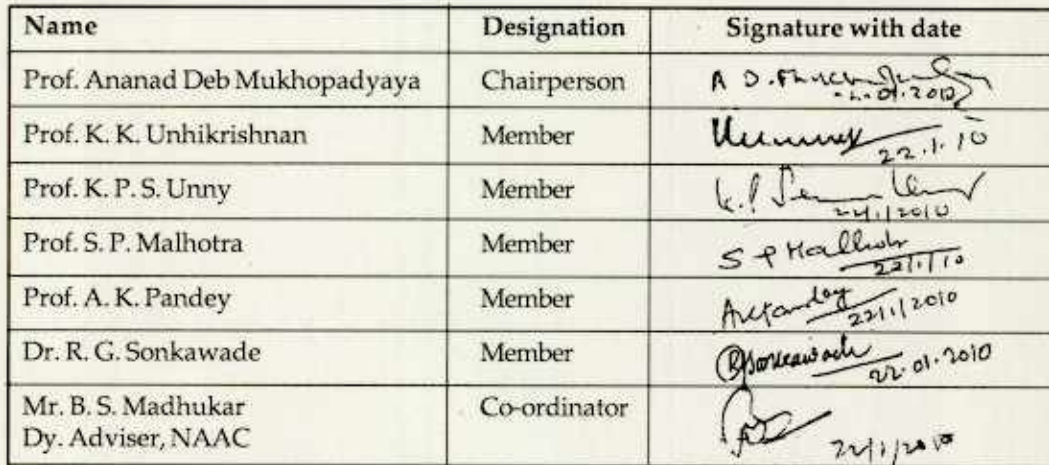 Name Designation Signature with date
Prof. Ananad Deb Mukhopadyaya Chairperson A D.
Prof. K. K. Unhikrishnan Member 22.1.10
Prof. K. P. S. Unny Member 22/1/2010
Prof. S. P. Malhotra Member S P Malhotra 22/1/10
Prof. A. K. Pandey Member AKPandey 22/1/2010
Dr. R. G. Sonkawade Member RGSonkawade 22.01.2010
Mr. B. S. Madhukar Co-ordinator
Dy. Adviser, NAAC 22/1/2010